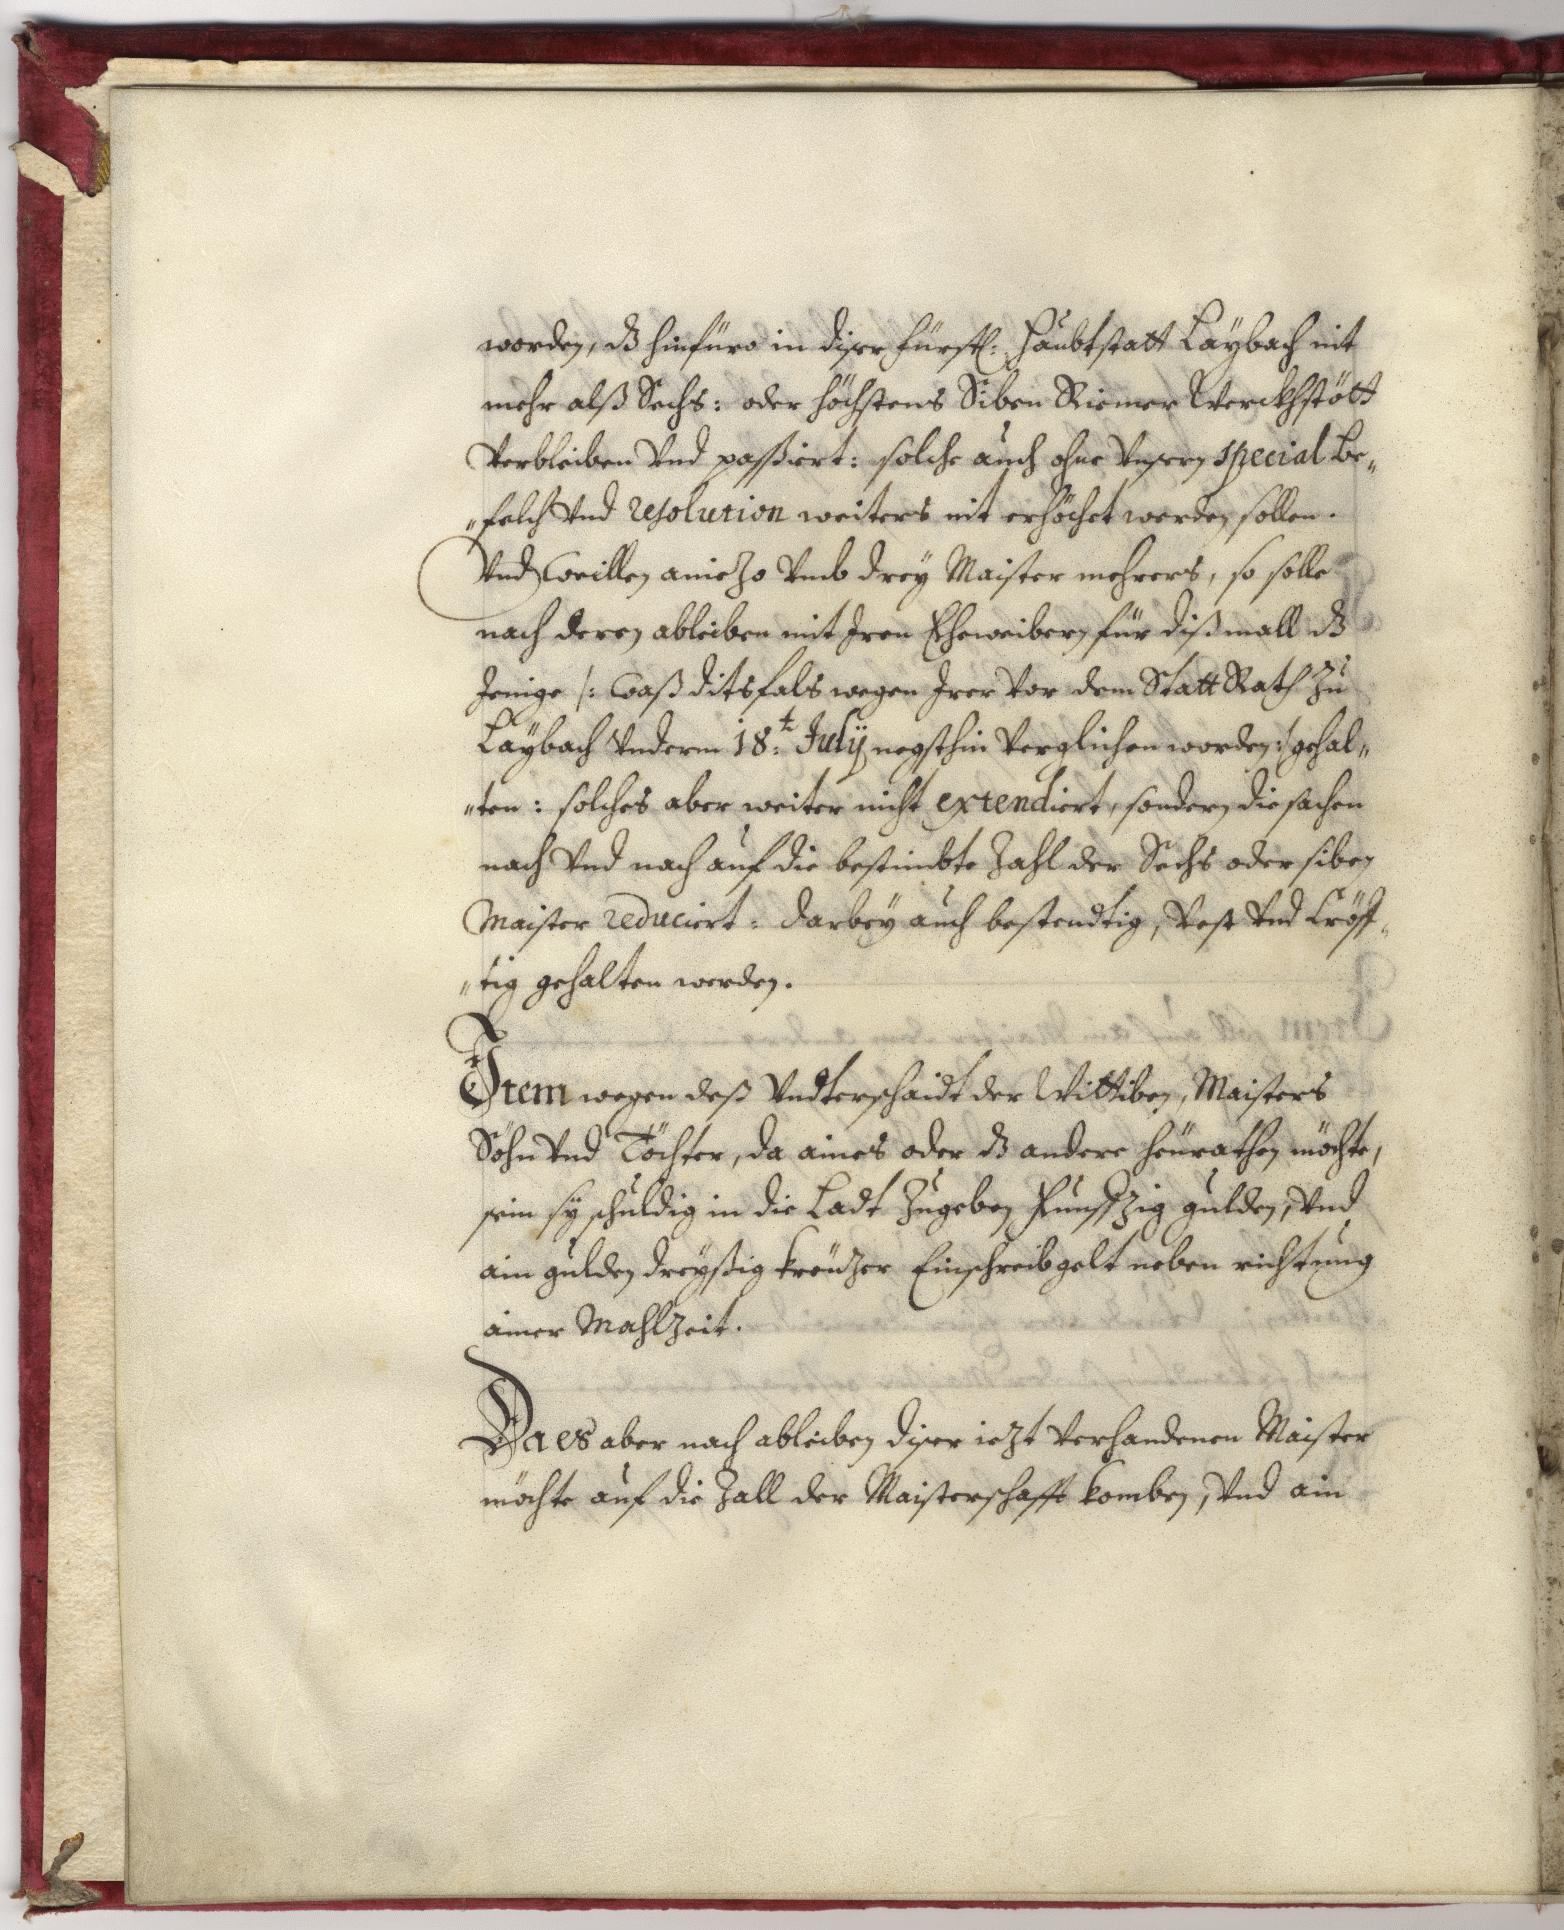 worden, dz hinfüro in diser Fürstl: Haubtstatt Laÿbach nit
mehr alß Sechs: oder höchstens Siben Riemer Werckhstött
Verbleiben Vnd passiert: solche auch ohne Vnsern special Be„
„felch Vnd resolution weiters nit erhöchet werden sollen.
Vnd Weillen aniezo Vmb dreÿ Maister mehrers, so solle
nach deren ableiben mit Iren Eheweibern für dißmall dz
Jenige /: Waß ditsfals wegen Irer Vor dem Statt Rath zu
Laÿbach Vnderm 18:t Julÿ negsthin Verglichen worden :/ gehal„
„ten: solches aber weiter nicht extendiert, sondern die sachen
nach Vnd nach auf die bestimbte Zahl der Sechs oder siben
Maister reduciert: darbeÿ auch bestendtig, Vest Vnd Cröff„
„tig gehalten werden.
Item wegen deß Vndterschaidt der Wittiben, Maisters
Söhn Vnd Töchter, da aines oder dz andere heurathen möchte,
sein sÿ schuldig in die Ladt Zugeben Funffzig gulden, Vnd
ain gulden dreÿßig kreuzer Einschreibgelt neben richtung
ainer Mahlzeit.
Da es aber nach ableiben diser iezt Verhandenen Maister
möchte auf die Zall der Maisterschafft komben, Vnd ain